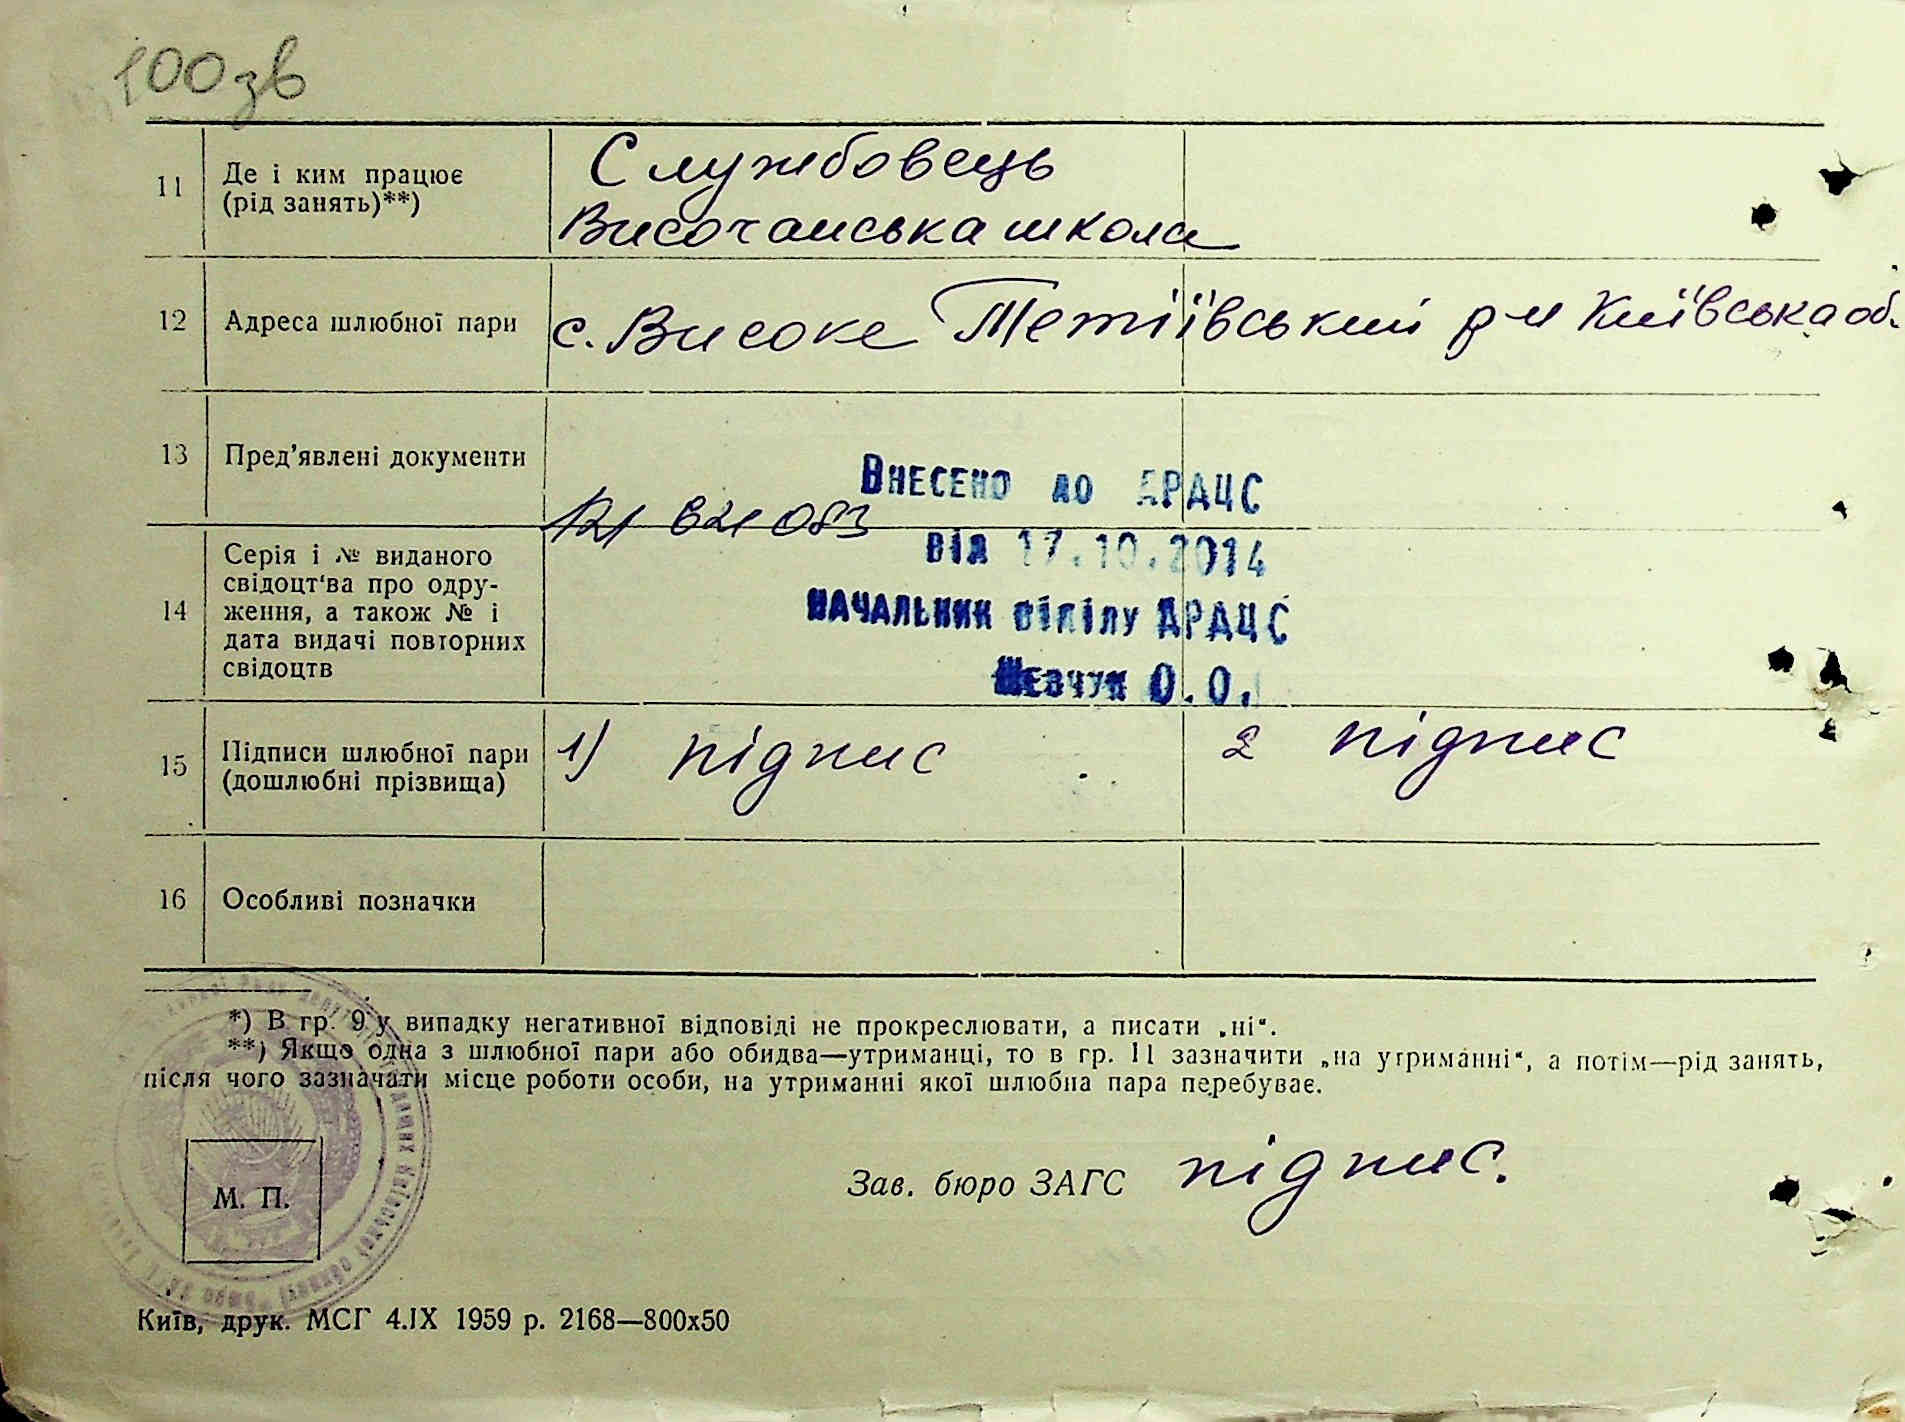 100зв
11 Де і ким працює
(рід занять)**)
Службовець
Височанська школа
12 Адреса шлюбної пари
с. Високе Тетіївський р-н Київська об.
13 Пред'явлені документи
Внесено до ДРАЦС
14 Серія і № виданого
свідоцт'ва про одру-
ження, а також № і
дата видачі повторних
свідоцтв
від 17.10.2014
начальник відділу ДРАЦС
Шевчук О.О.
15 Підписи шлюбної пари
(дошлюбні прізвища)
1) підпис
2 підпис
16 Особливі позначки
*) В гр. 9 у випадку негативної відповіді не прокреслювати, а писати „ні“.
**) Якщо одна з шлюбної пари або обидва—утриманці, то в гр. 11 зазначити „на утриманні“, а потім—рід занять,
після чого зазначати місце роботи особи, на утриманні якої шлюбна пара перебуває.
М. П.
Зав. бюро ЗАГС підпис.
Київ, друк. МСГ 4.IX 1959 р. 2168—800x50